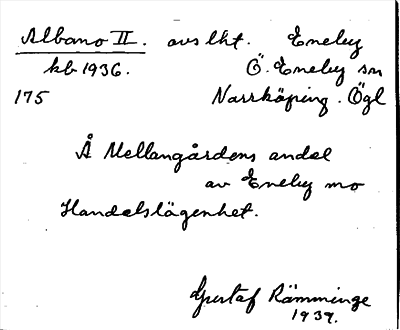 Albano II. avs lht. Eneby
kb 1936. Ö. Eneby sn
175 Norrköping. Ögl
Å Mellangårdens andel
av Eneby mo
Handelslägenhet.
Gustaf Rämminge
1937.